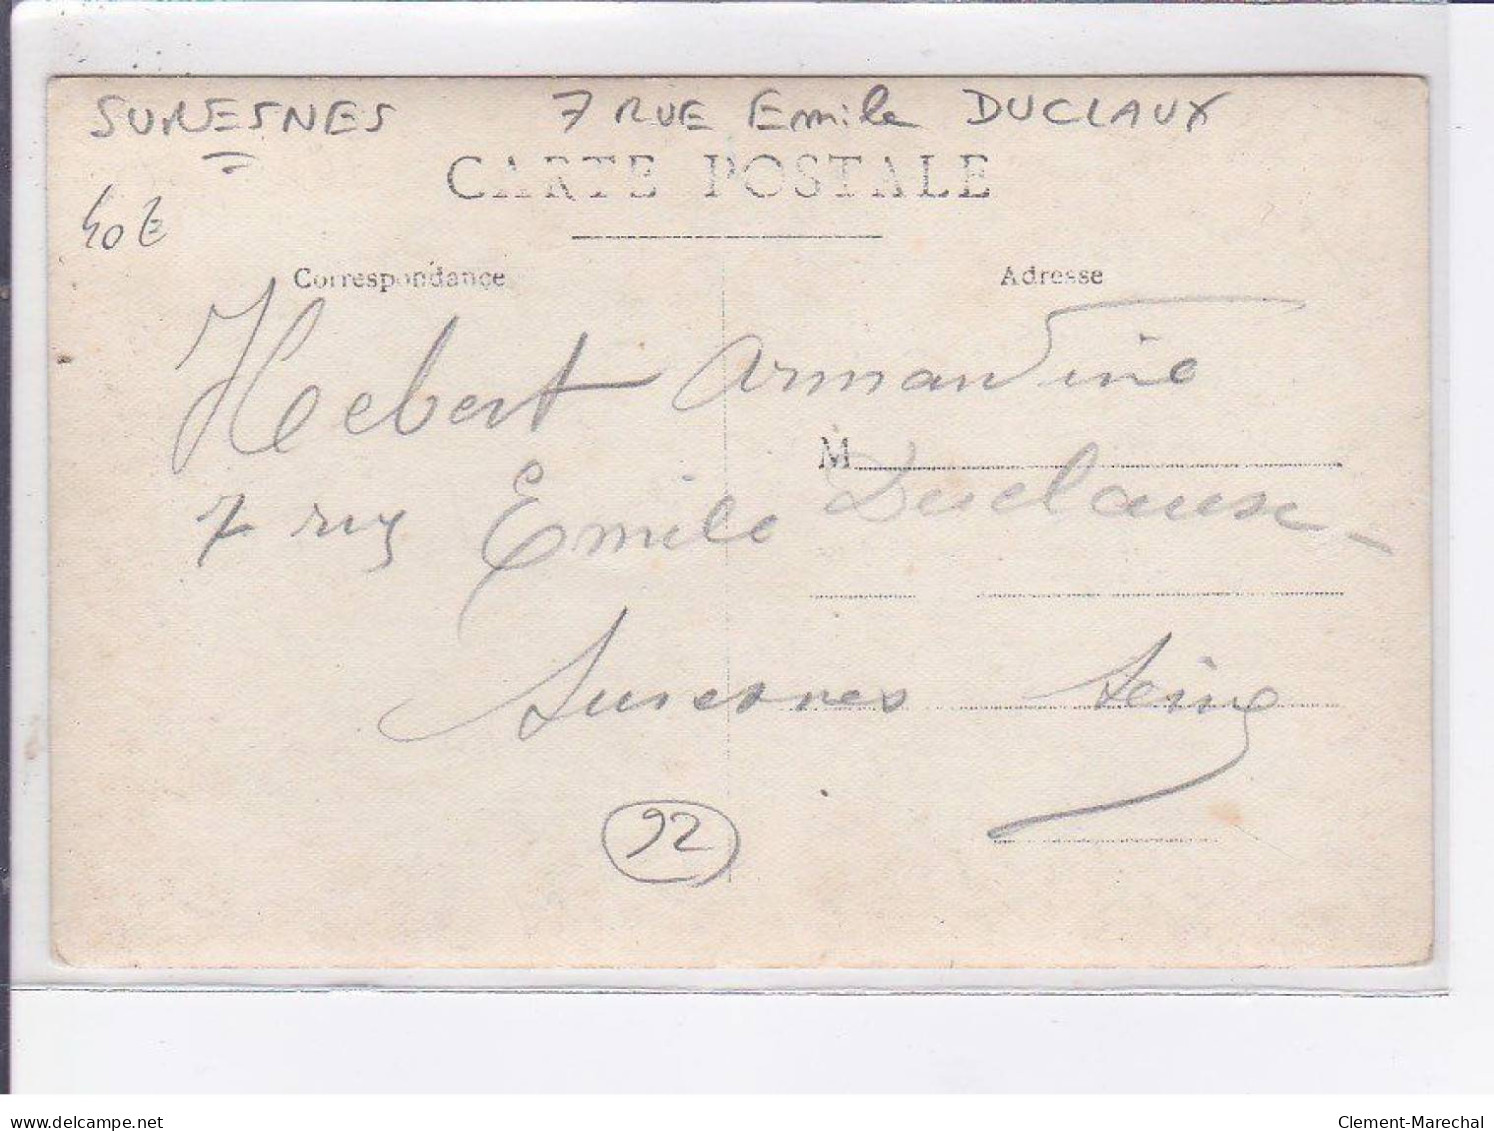 SURESNES 7 RUE Emile DUCLAUX
CARTE POSTALE
40E
Correspondance Adresse
Hebert Armandine
M
7 rue Emile Duclaux
Suresnes Seine
92
delcampe.net Clement-Marechal